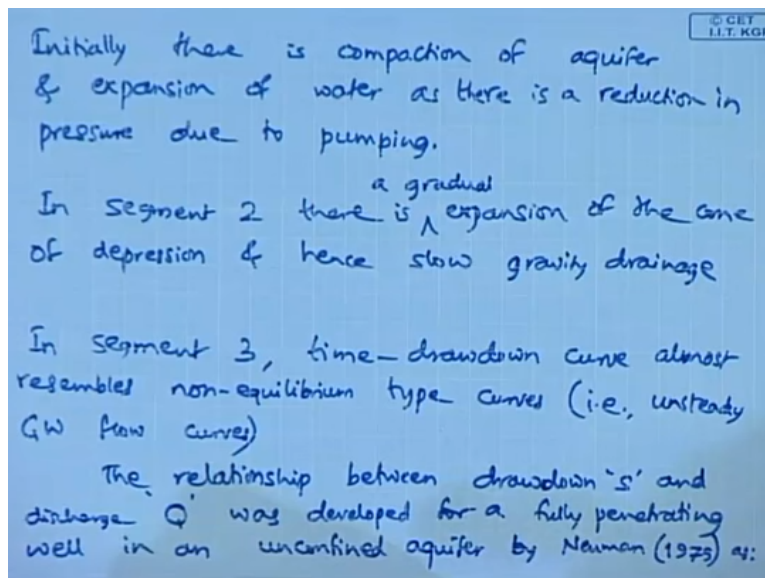 © CET
I.I.T. KGP
Initially there is compaction of aquifer
& expansion of water as there is a reduction in
pressure due to pumping.
In segment 2 there is a gradual expansion of the cone
of depression & hence slow gravity drainage
In segment 3, time-drawdown curve almost
resembles non-equilibrium type curves (i.e., unsteady
GW flow curves)
The relationship between drawdown 's' and
discharge 'Q' was developed for a fully penetrating
well in an unconfined aquifer by Neuman (1975) as: